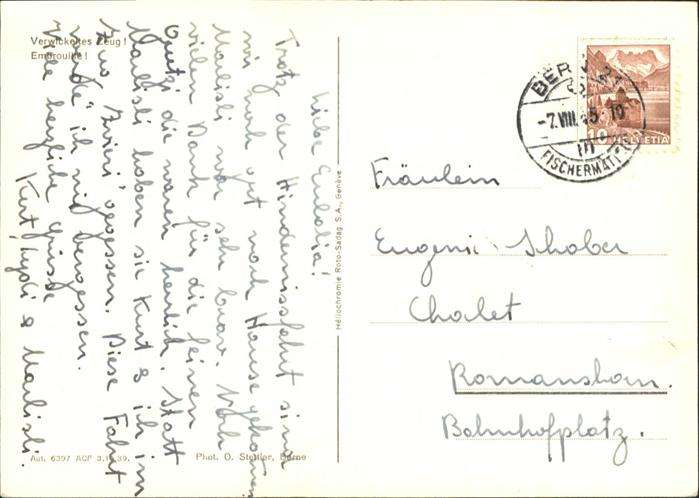 Verwickeltes Zeug!
Embrouillé!
Liebe Eulalia!
Trotz der Hindernissfahrt sind
wir noch gut nach Hause gekommen
Marlisli war sehr brav. Noch
vielen Dank für die feinen
Guetzi die waren herrlich. Statt
Marlisli haben sie Kurt & ich im
Zug Zvieri gegessen. Diese Fahrt
werde ich nie vergessen.
Viele herzliche Grüsse
Kurt, Hydi & Marlisli.
Aut. 6397 ACF 3.10.39.
Phot. O. Stettler, Berne
Héliochromie Roto-Sadag S.A., Genève
BERN
-7.VIII.45. 10
FISCHERMÄTTELI
10
HELVETIA
Fräulein
Eugenie Schober
Chalet
Romanshorn.
Bahnhofplatz.